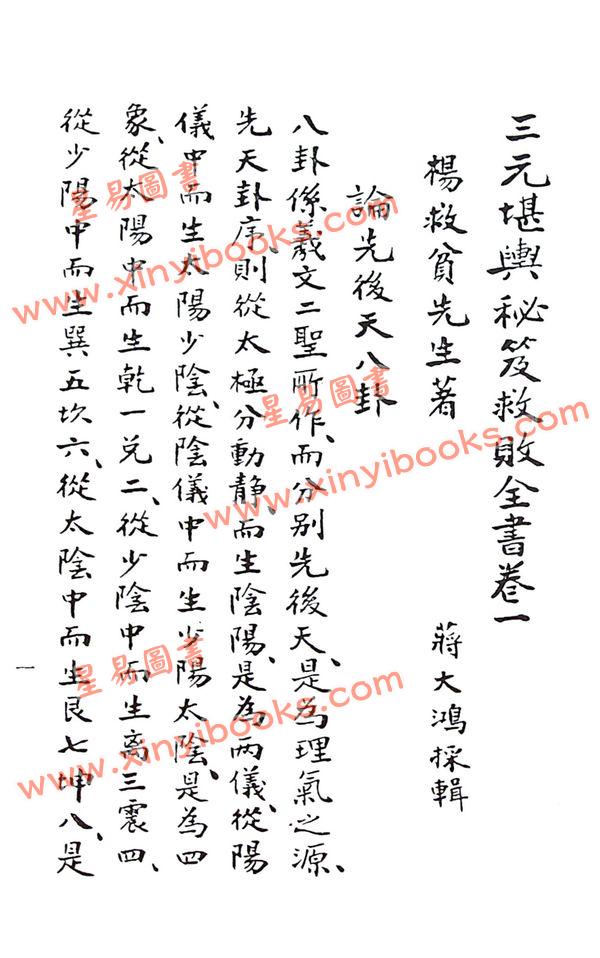 三元堪輿秘笈救敗全書卷一
楊救貧先生著
蔣大鴻採輯
論先後天八卦
八卦係羲文二聖所作、而分別先後天、是為理氣之源、
先天卦序、則從太極分動靜、而生陰陽、是為兩儀、從陽
儀中而生太陽少陰、從陰儀中而生少陽太陰、是為四
象、從太陽中而生乾一兌二、從少陰中而生离三震四、
從少陽中而生巽五坎六、從太陰中而生艮七坤八、是
一
星易圖書
www.xinyibooks.com
星易圖書
www.xinyibooks.com
星易圖書
www.xinyibooks.com